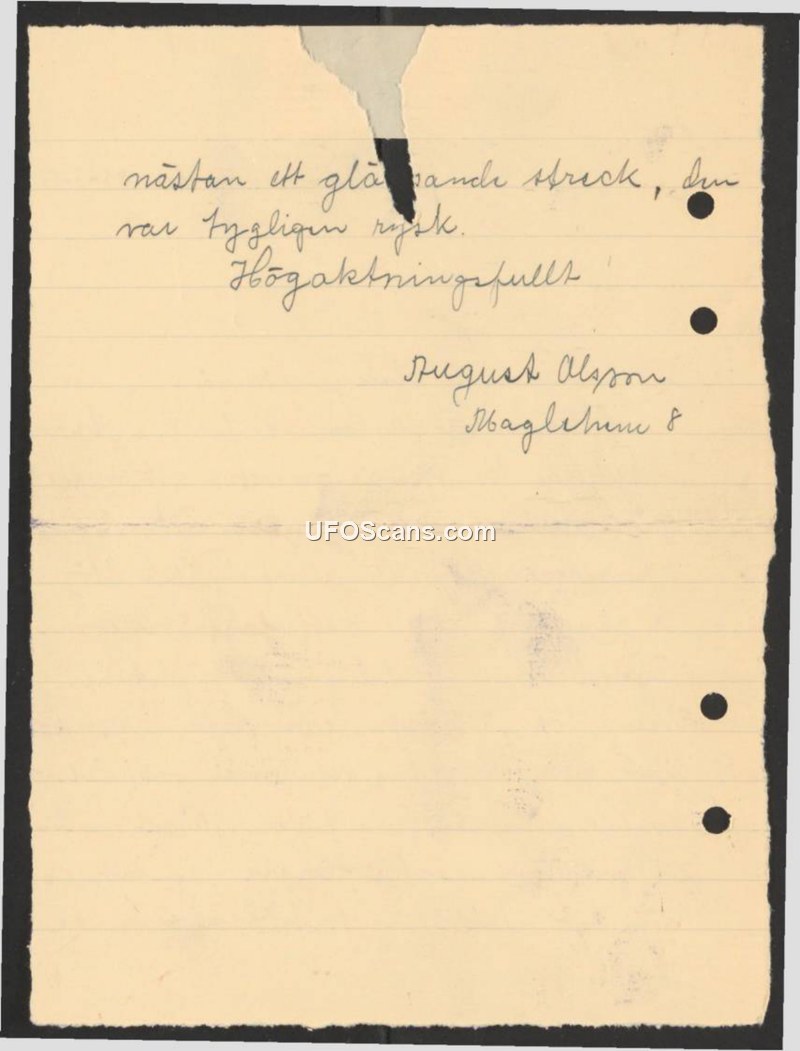 nästan ett glä pande streck, den
var tygligen rysk.
Högaktningsfullt
August Olsson
Maglehem 8
UFOScans.com